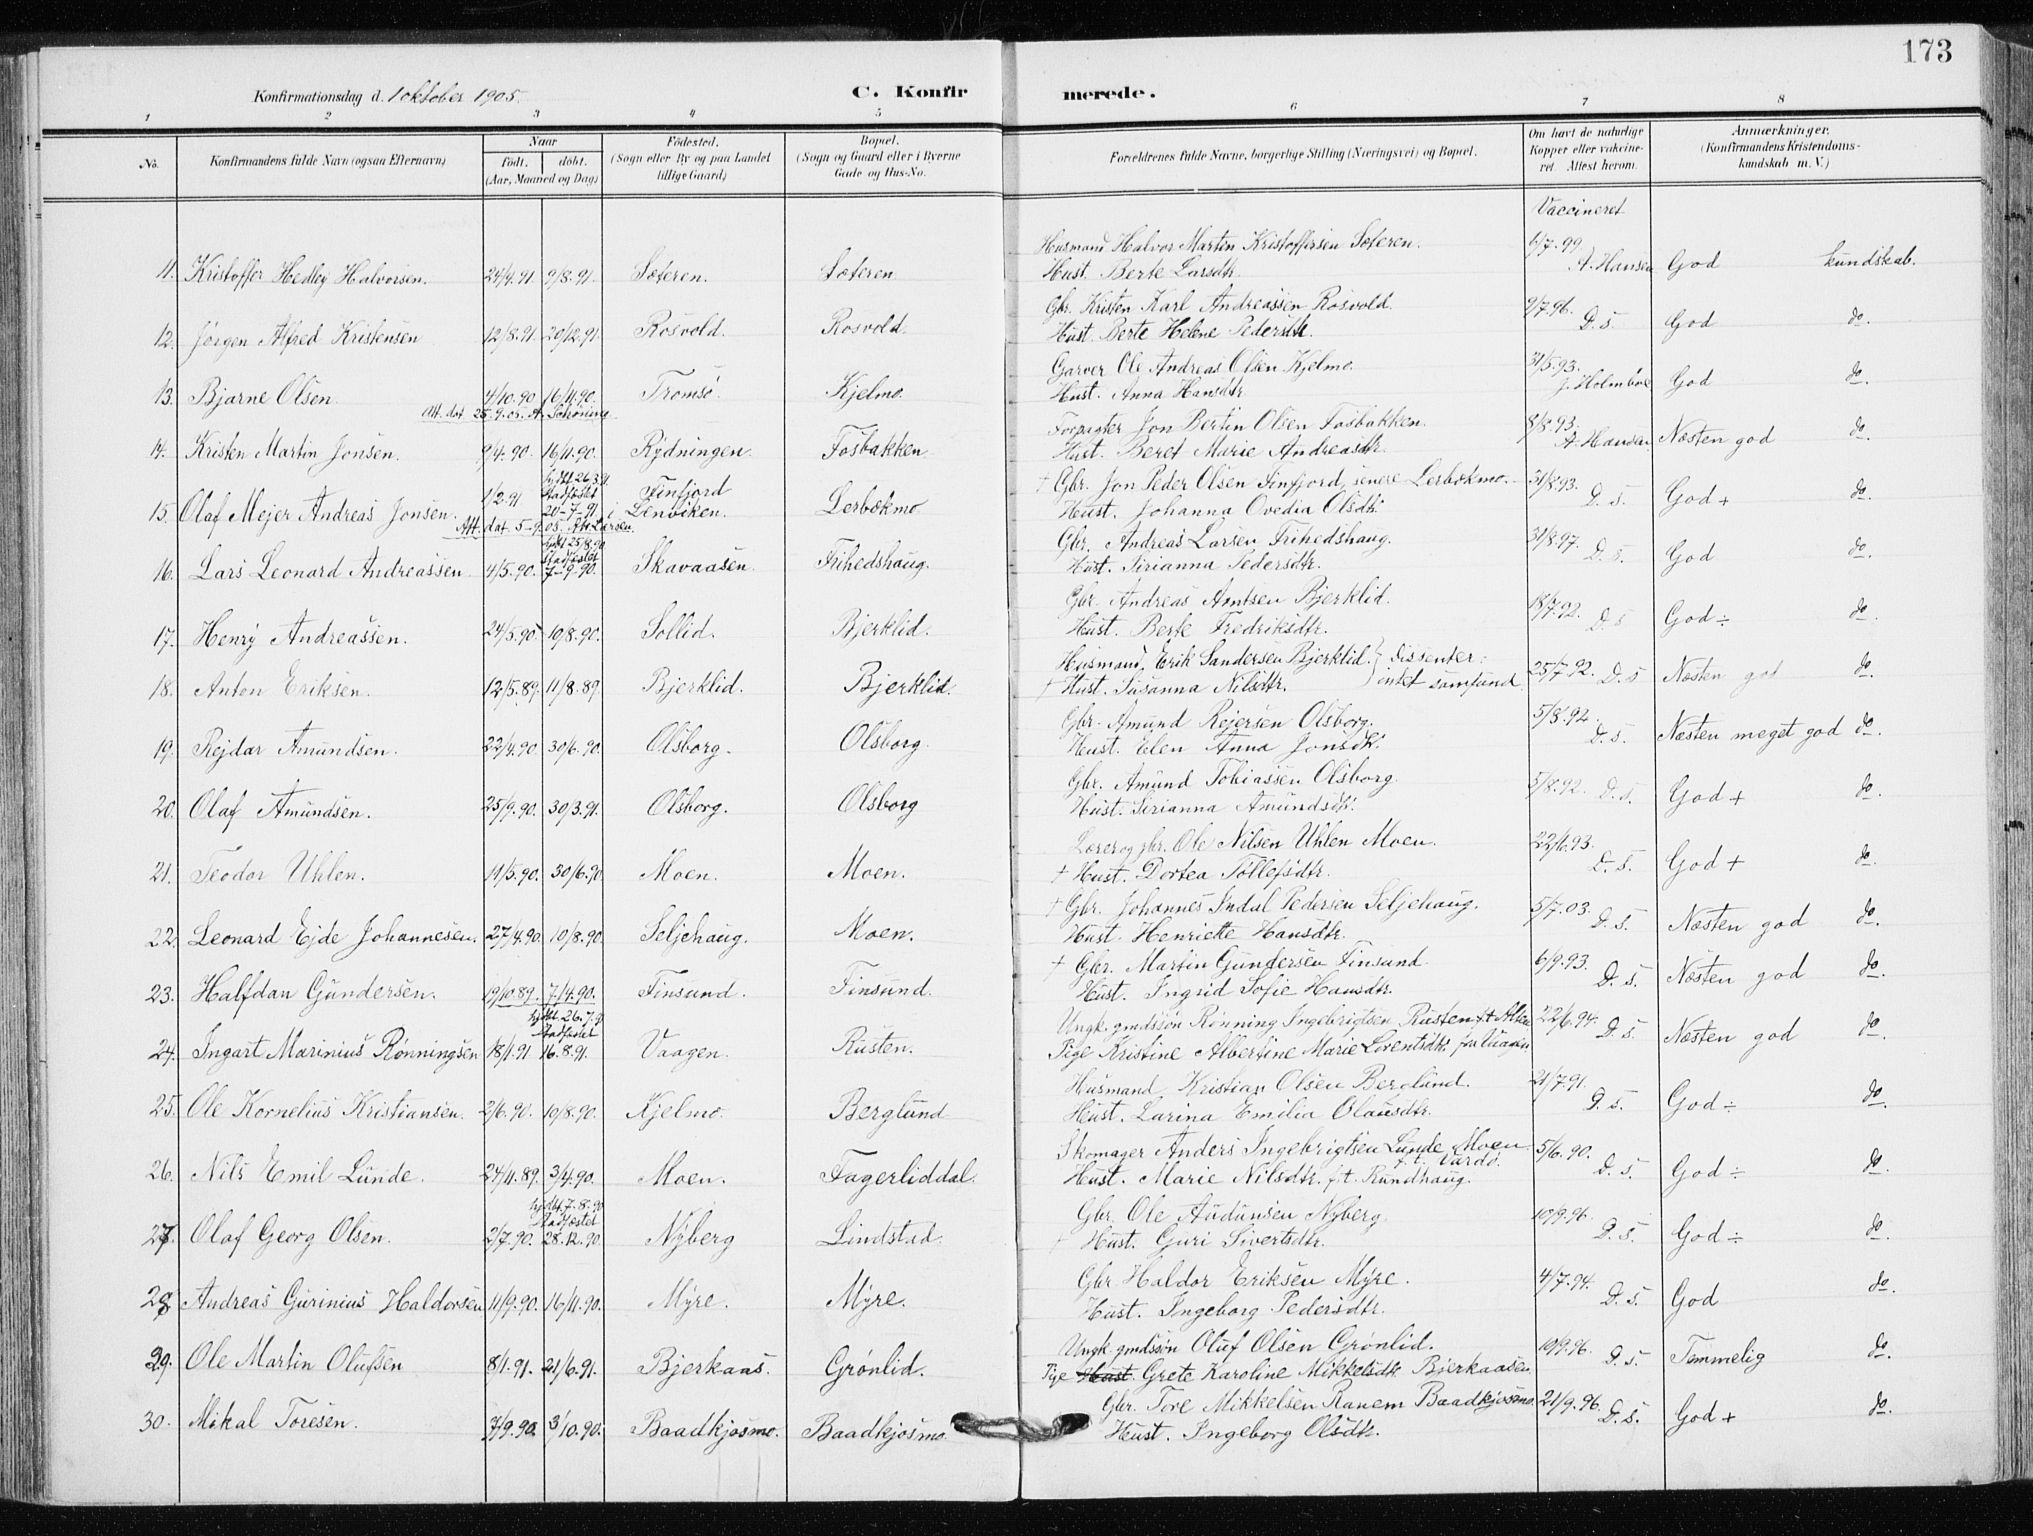 173
Konfirmationsdag d. 1 oktober 1905.
C. Konfirmerede.
1 2 3 4 5 6 7 8
No. Konfirmandens fulde Navn (ogsaa Efternavn) Naar født. døbt. (Aar, Maaned og Dag) Fødested. (Sogn eller By og paa Landet tillige Gaard) Bopæl. (Sogn og Gaard eller i Byerne Gade og Hus-No. Forældrenes fulde Navne, borgerlige Stilling (Næringsvei) og Bopæl. Om havt de naturlige Kopper eller vakcineret. Attest herom. Anmærkninger. (Konfirmandens Kristendomskundskab m. V.)
Vaccineret
Husmand Halvor Martin Kristoffersen Sæteren. 6/7.99
11. Kristoffer Hedley Halvorsen. 24/4.91. 9/8.91. Sæteren. Sæteren Hust. Berte Larsdtr. A. Hansen God kundskab.
Gbr. Kristen Karl Andreassen Rosvold. 9/7.96.
12. Jørgen Alfred Kristensen 12/8.91. 20/12.91. Rosvold. Rosvold. Hust. Berte Helene Pedersdtr. D. s. God do.
Garver Ole Andreas Olsen Kjelmo. 31/5.93.
13. Bjarne Olsen. 4/10.90 16/11.90. Tromsø. Kjelmo. Hust. Anna Hansdtr J. Holmboe God do.
Att. dat. 25.9.05. A. Schøning.
Forpagter Jon Bertin Olsen Fosbakken. 8/8.93.
14. Kristen Martin Jonsen. 9/4.90. 16/11.90. Rydningen. Fosbakken. Hust. Beret Marie Andreasdtr. A. Hansen. Næsten god do.
hjdbt 26.3.91. Stadfæstet
† Gbr. Jon Peder Olsen Finfjord, senere Lerbækmo. 31/8.93.
15. Olaf Mejer Andreas Jonsen. 1/2.91 20-7-91 Finfjord i Lenviken. Lerbækmo Hust. Johanna Ovedia Olsdtr. D. s. God + do.
Att. dat. 5-9.05. Larsen.
hjdbt 25/8.90 Stadfæstet
Gbr. Andreas Larsen Frihedshaug. 31/8.97.
16. Lars Leonard Andreassen 4/5.90. 7-9-90. Skavaasen. Frihedshaug. Hust. Sirianna Pedersdtr. D. s. God do.
Gbr. Andreas Arntsen Bjerklid. 18/7.92.
17. Henry Andreassen. 24/5.90 10/8.90. Sollid. Bjerklid. Hust. Berte Fredriksdtr. D. s God ÷ do.
Husmand. Erik Sandersen Bjerklid. } Dissenter:
18. Anton Eriksen. 12/5.89. 11/8.89. Bjerklid. Bjerklid. † Hust. Susanna Nilsdtr. intet samfund 25/7.92. D. s Næsten god do.
Gbr. Amund Rejersen Olsborg. 5/8.92.
19. Rejdar Amundsen. 22/4.90 30/6.90. Olsborg. Olsborg. Hust. Elen Anna Jonsdtr. D. s. Næsten meget god do.
Gbr. Amund Tobiassen Olsborg. 5/8.92.
20. Olaf Amundsen. 25/9.90. 30/3.91. Olsborg. Olsborg Hust. Sirianna Amundsdtr. D. s. God + do.
Lærer og gbr. Ole Nilsen Uhlen Moen. 22/6.93.
21. Teodor Uhlen. 11/5.90. 30/6.90 Moen. Moen. † Hust. Dortea Tollefsdtr. D. s. God + do.
† Gbr. Johannes Indal Pedersen Seljehaug. 5/7.03.
22. Leonard Ejde Johannesen. 27/4.90. 10/8.90. Seljehaug. Moen. Hust. Henriette Hansdtr. D. s. Næsten god do.
† Gbr. Martin Gundersen Finsund. 6/9.93.
23. Halfdan Gundersen. 19/10.89. 7/4.90. Finsund. Finsund. Hust. Ingrid Sofie Hansdtr. D. s. Næsten god do.
hjdbt. 26.7.91 Stadfæstet
Ungk. gmdssøn Rønning Ingebrigtsen Rusten f.t. Alten 22/6.94.
24. Ingart Marinius Rønningsen 18/1.91 16.8.91. Vaagen. Rusten. Pige Kristine Albertine Marie Lorentsdtr. fra Vaagen D. s. Næsten god do.
Husmand Kristian Olsen Berglund. 21/7.91.
25. Ole Kornelius Kristiansen. 2/6.90. 10/8.90. Kjelmo. Berglund Hust. Larina Emilia Olausdtr. D. s. God ÷ do.
Skomager Anders Ingebrigtsen Lunde Moen 5/6.90.
f.t. Vardø.
26. Nils Emil Lunde. 24/11.89. 3/4.90. Moen. Fagerliddal. Hust. Marie Nilsdtr. f.t. Rundhaug. D. s. God ÷ do.
hjdbt. 7-8.90 Stadfæstet
Gbr. Ole Audunsen Nyberg. 10/9.96.
27. Olaf Georg Olsen. 2/7.90. 28.12.90. Nyberg Lindstad. † Hust. Guri Sivertsdtr. D. s. God ÷ do.
Gbr. Haldor Eriksen Myre. 4/7.94.
28. Andreas Gurinius Haldorsen 11/9.90. 16/11.90. Myre. Myre. Hust. Ingeborg Pedersdtr. D. s. God do.
Ungk. gmdssøn Oluf Olsen Grønlid. 10/9.96.
29. Ole Martin Olufsen 8/1.91. 21/6.91. Bjerkaas. Grønlid. Pige Hust. Grete Karoline Mikkelsdtr. Bjerkaasen. D. s. Temmelig do.
Gbr. Tore Mikkelsen Ranem Baadkjosmo. 21/9.96.
30. Mikal Toresen. 7/9.90. 3/10.90. Baadkjosmo. Baadkjosmo. Hust. Ingeborg Olsdtr. D. s. God + do.